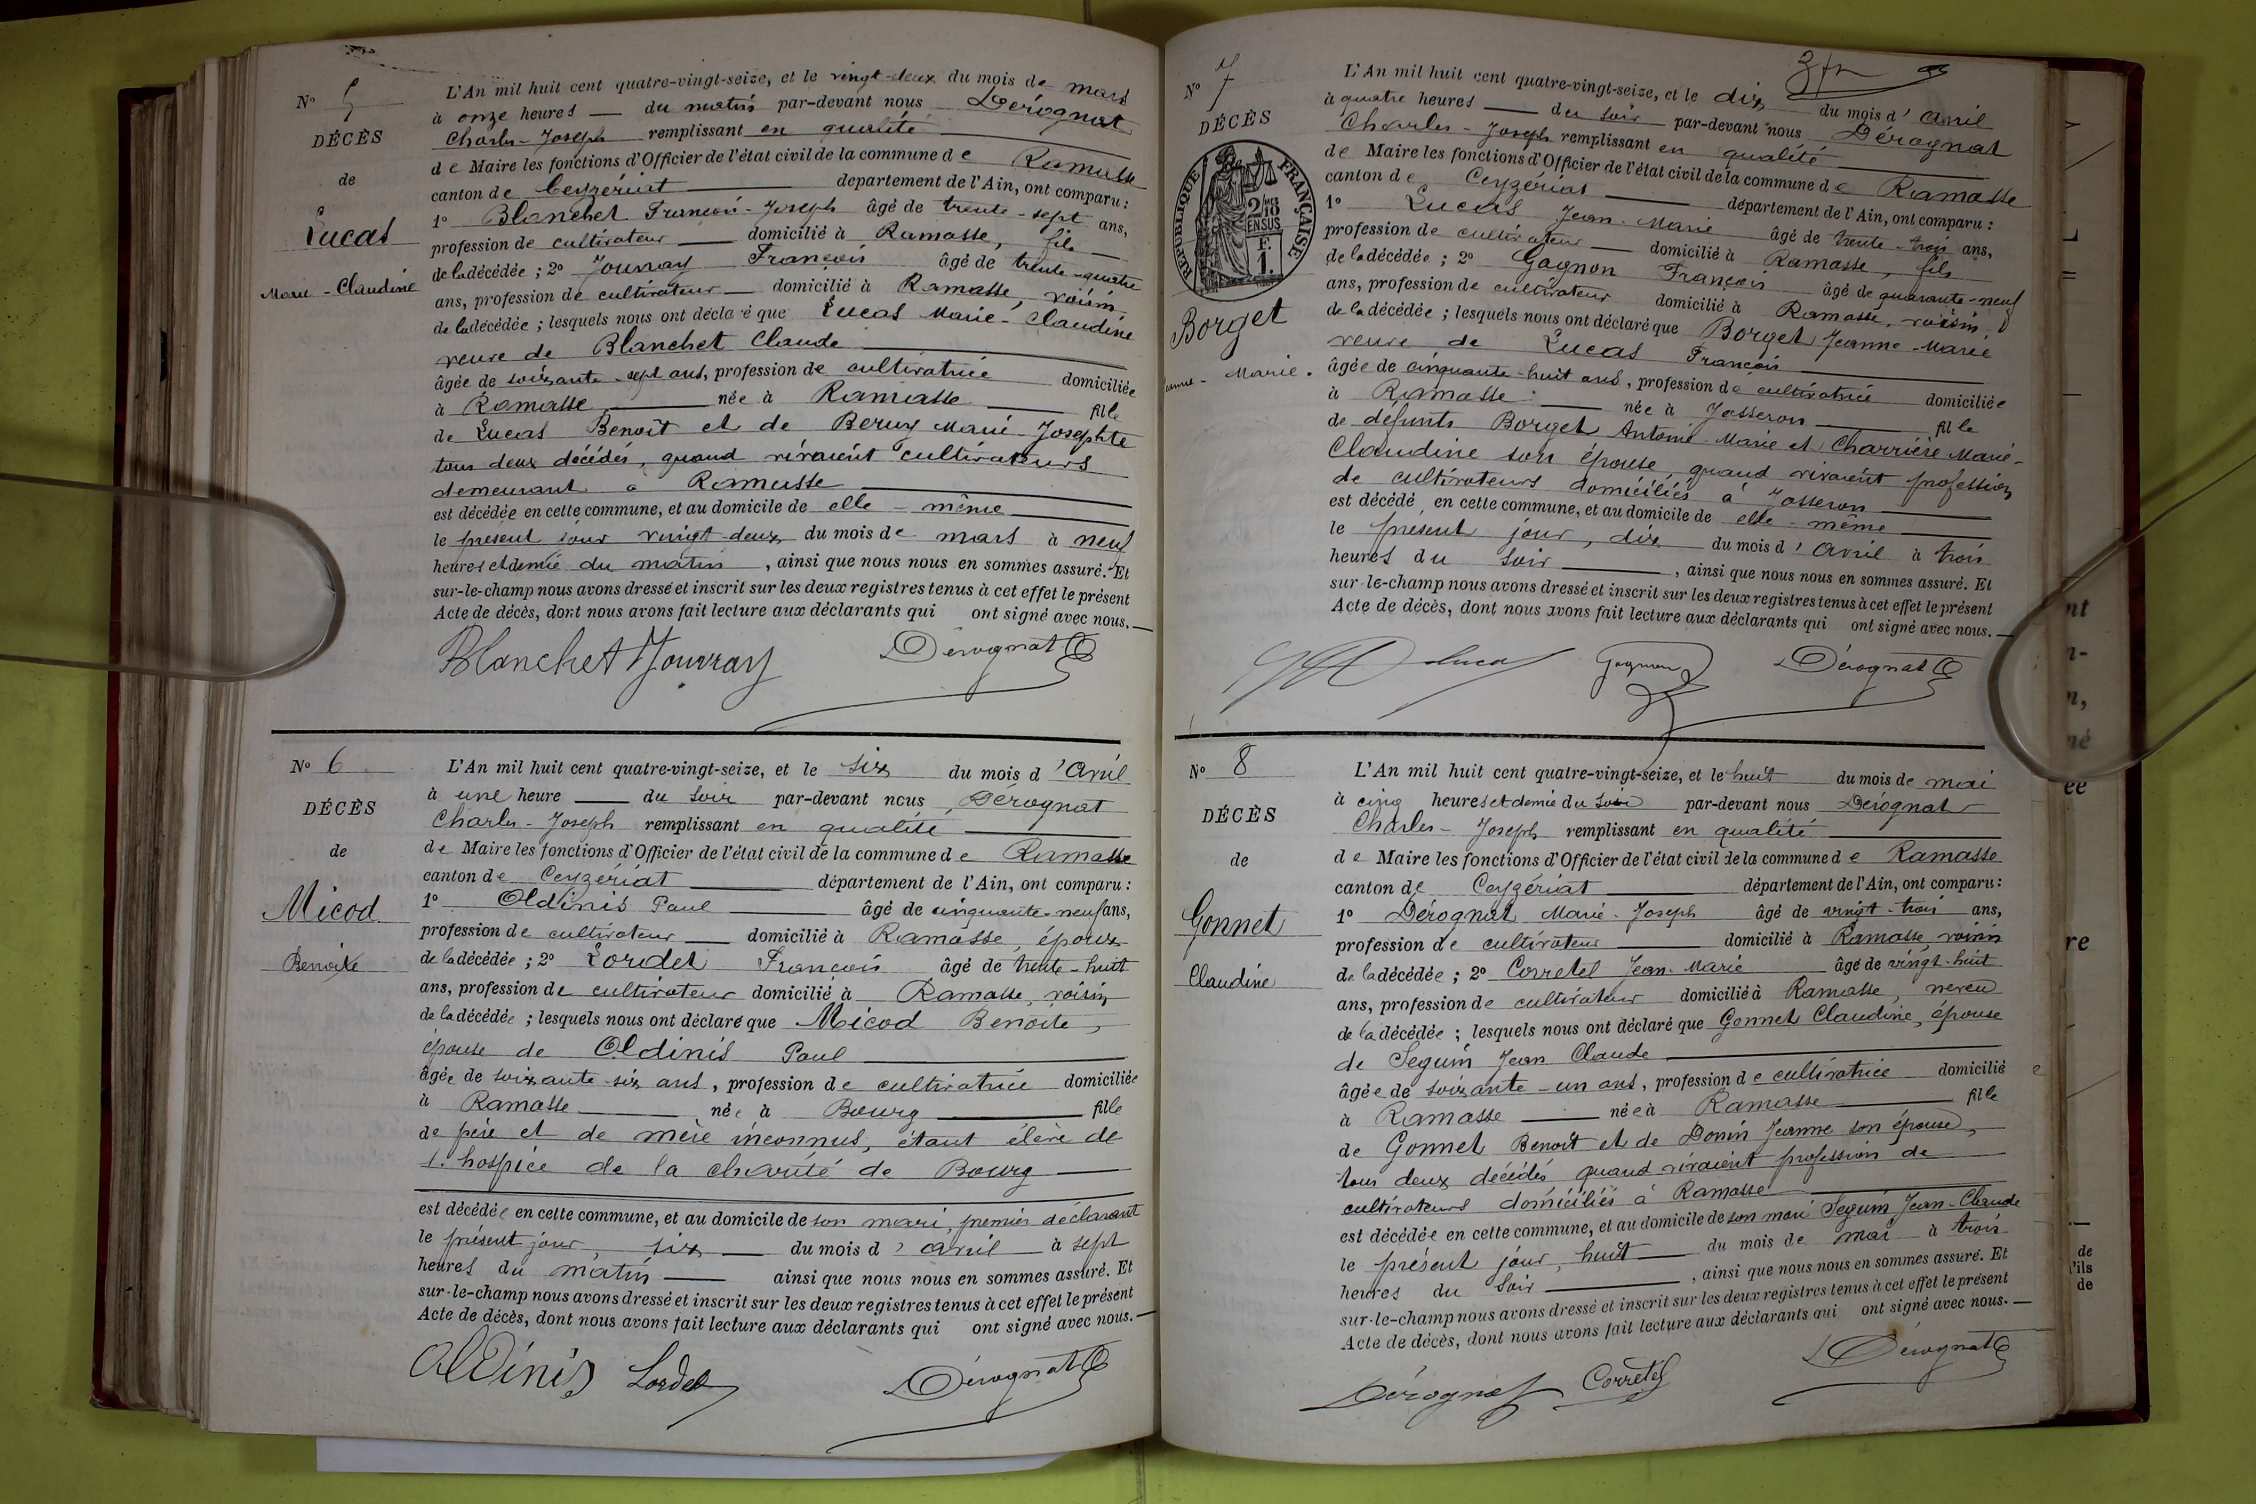 N° 5
DÉCÈS
de
Lucas
Marie - Claudine
L'An mil huit cent quatre-vingt-seize, et le vingt-deux du mois de mars
à onze heures — du matin par-devant nous Dérognat
Charles-Joseph remplissant en qualité
de Maire les fonctions d'Officier de l'état civil de la commune de Ramasse
canton de Ceyzériat département de l'Ain, ont comparu :
1° Blanchet François-Joseph âgé de trente-sept ans,
profession de cultivateur — domicilié à Ramasse, fils
de la décédée ; 2° Jouvray François âgé de trente-quatre
ans, profession de cultivateur — domicilié à Ramasse, voisin
de la décédée ; lesquels nous ont déclaré que Lucas Marie-Claudine
veuve de Blanchet Claude
âgée de soixante-sept ans, profession de cultivatrice domiciliée
à Ramasse, née à Ramasse fille
de Lucas Benoît et de Beruy Marie-Josephte
tous deux décédés, quand vivaient cultivateurs
demeurant à Ramasse
est décédée en cette commune, et au domicile de elle-même
le présent jour vingt-deux du mois de mars à neuf
heures et demie du matin, ainsi que nous nous en sommes assuré. Et
sur-le-champ nous avons dressé et inscrit sur les deux registres tenus à cet effet le présent
Acte de décès, dont nous avons fait lecture aux déclarants qui ont signé avec nous. —
Blanchet Jouvray Dérognat
N° 6
DÉCÈS
de
Micod
Benoite
L'An mil huit cent quatre-vingt-seize, et le six du mois d'avril
à une heure — du soir par-devant nous Dérognat
Charles-Joseph remplissant en qualité
de Maire les fonctions d'Officier de l'état civil de la commune de Ramasse
canton de Ceyzériat département de l'Ain, ont comparu :
1° Oldinis Paul âgé de cinquante-neuf ans,
profession de cultivateur — domicilié à Ramasse, époux
de la décédée ; 2° Lordet François âgé de trente-huit
ans, profession de cultivateur domicilié à Ramasse, voisin
de la décédée ; lesquels nous ont déclaré que Micod Benoite,
épouse de Oldinis Paul
âgée de soixante-six ans, profession de cultivatrice domiciliée
à Ramasse née à Bourg fille
de père et de mère inconnus, étant élève de
l'hospice de la charité de Bourg
est décédée en cette commune, et au domicile de son mari, premier déclarant
le présent jour, six — du mois d'avril à sept
heures du matin — ainsi que nous nous en sommes assuré. Et
sur-le-champ nous avons dressé et inscrit sur les deux registres tenus à cet effet le présent
Acte de décès, dont nous avons fait lecture aux déclarants qui ont signé avec nous. —
Oldinis Lordet Dérognat
N° 7
DÉCÈS
RÉPUBLIQUE FRANÇAISE
2/10
EN SUS
F.
1.
Borget
Marie.
L'An mil huit cent quatre-vingt-seize, et le dix du mois d'avril
à quatre heures — du soir par-devant nous Dérognat
Charles-Joseph remplissant en qualité
de Maire les fonctions d'Officier de l'état civil de la commune de Ramasse
canton de Ceyzériat département de l'Ain, ont comparu :
1° Lucas Jean-Marie âgé de trente-trois ans,
profession de cultivateur — domicilié à Ramasse, fils
de la décédée ; 2° Gagnon François âgé de quarante-neuf
ans, profession de cultivateur domicilié à Ramasse, voisin
de la décédée ; lesquels nous ont déclaré que Borget Jeanne-Marie
veuve de Lucas François
âgée de cinquante-huit ans, profession de cultivatrice domiciliée
à Ramasse née à Jasseron fille
de défunts Borget Antoine-Marie et Charrière Marie-
Claudine son épouse, quand vivaient profession
de cultivateurs domiciliés à Jasseron
est décédé en cette commune, et au domicile de elle-même
le présent jour, dix du mois d'avril à trois
heures du soir, ainsi que nous nous en sommes assuré. Et
sur-le-champ nous avons dressé et inscrit sur les deux registres tenus à cet effet le présent
Acte de décès, dont nous avons fait lecture aux déclarants qui ont signé avec nous. —
Lucas Gagnon Dérognat
N° 8
DÉCÈS
de
Gonnet
Claudine
L'An mil huit cent quatre-vingt-seize, et le huit du mois de mai
à cinq heures et demie du soir par-devant nous Dérognat
Charles-Joseph remplissant en qualité
de Maire les fonctions d'Officier de l'état civil de la commune de Ramasse
canton de Ceyzériat département de l'Ain, ont comparu :
1° Dérognat Marie-Joseph âgé de vingt-trois ans,
profession de cultivateur domicilié à Ramasse, voisin
de la décédée ; 2° Corretel Jean-Marie âgé de vingt-huit
ans, profession de cultivateur domicilié à Ramasse, neveu
de la décédée ; lesquels nous ont déclaré que Gonnet Claudine, épouse
de Seguin Jean Claude
âgée de soixante-un ans, profession de cultivatrice domiciliée
à Ramasse née à Ramasse fille
de Gonnet Benoît et de Donin Jeanne son épouse,
tous deux décédés quand vivaient profession de
cultivateurs domiciliés à Ramasse
est décédée en cette commune, et au domicile de son mari Seguin Jean-Claude
le présent jour, huit — du mois de mai à trois
heures du soir, ainsi que nous nous en sommes assuré. Et
sur-le-champ nous avons dressé et inscrit sur les deux registres tenus à cet effet le présent
Acte de décès, dont nous avons fait lecture aux déclarants qui ont signé avec nous. —
Dérognat Corretel Dérognat